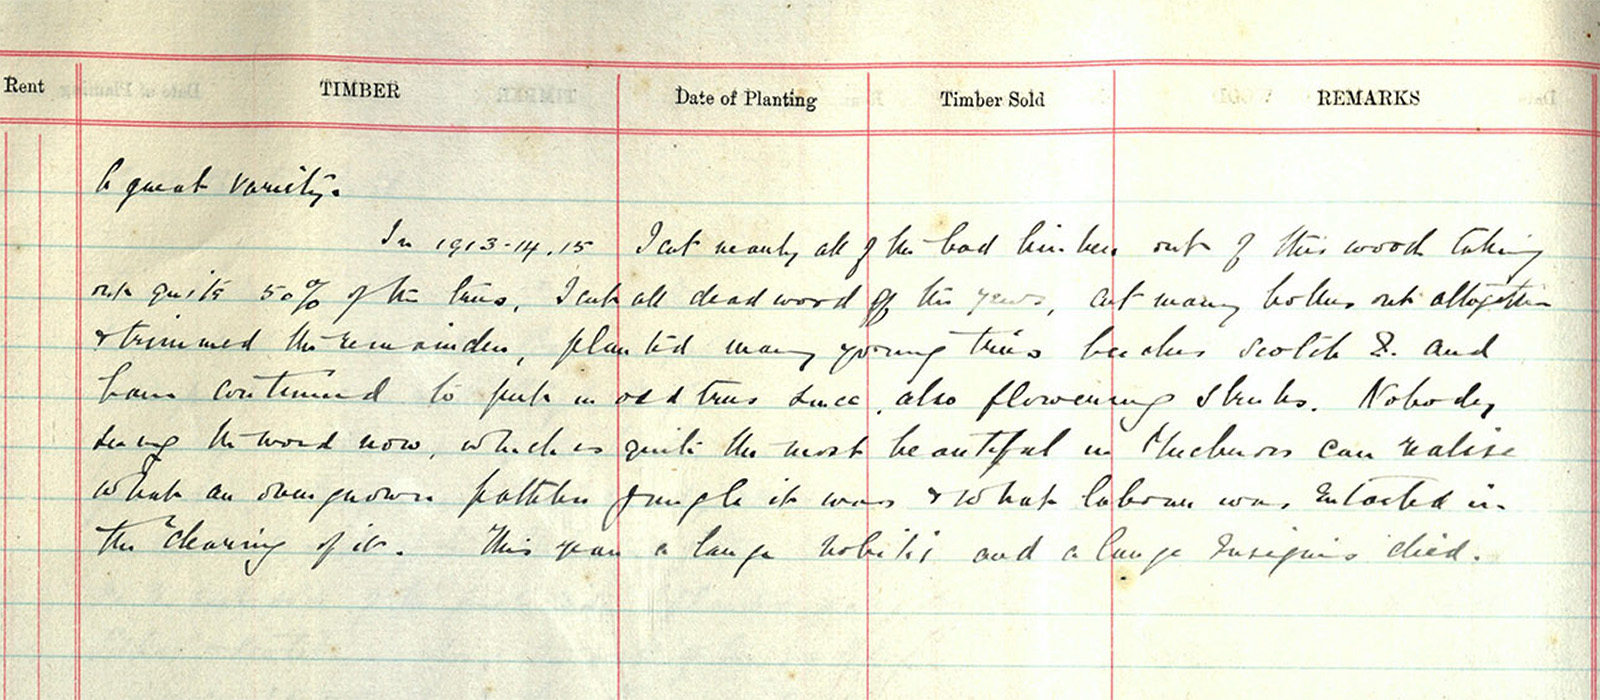 Rent TIMBER Date of Planting Timber Sold REMARKS
A great variety.
In 1913-14.15 I cut nearly all of the bad timber out of this wood taking
out quite 50% of the trees, I cut all dead wood off the yews, cut many hollies out altogether
& trimmed the remainder, planted many young trees beeches Scotch F. and
have continued to put in odd trees since, also flowering shrubs. Nobody
seeing the wood now, which is quite the most beautiful in Muckross can realise
what an overgrown pathless jungle it was & what labour was entailed in
the clearing of it. This year a large nobilis and a large Insignis died.